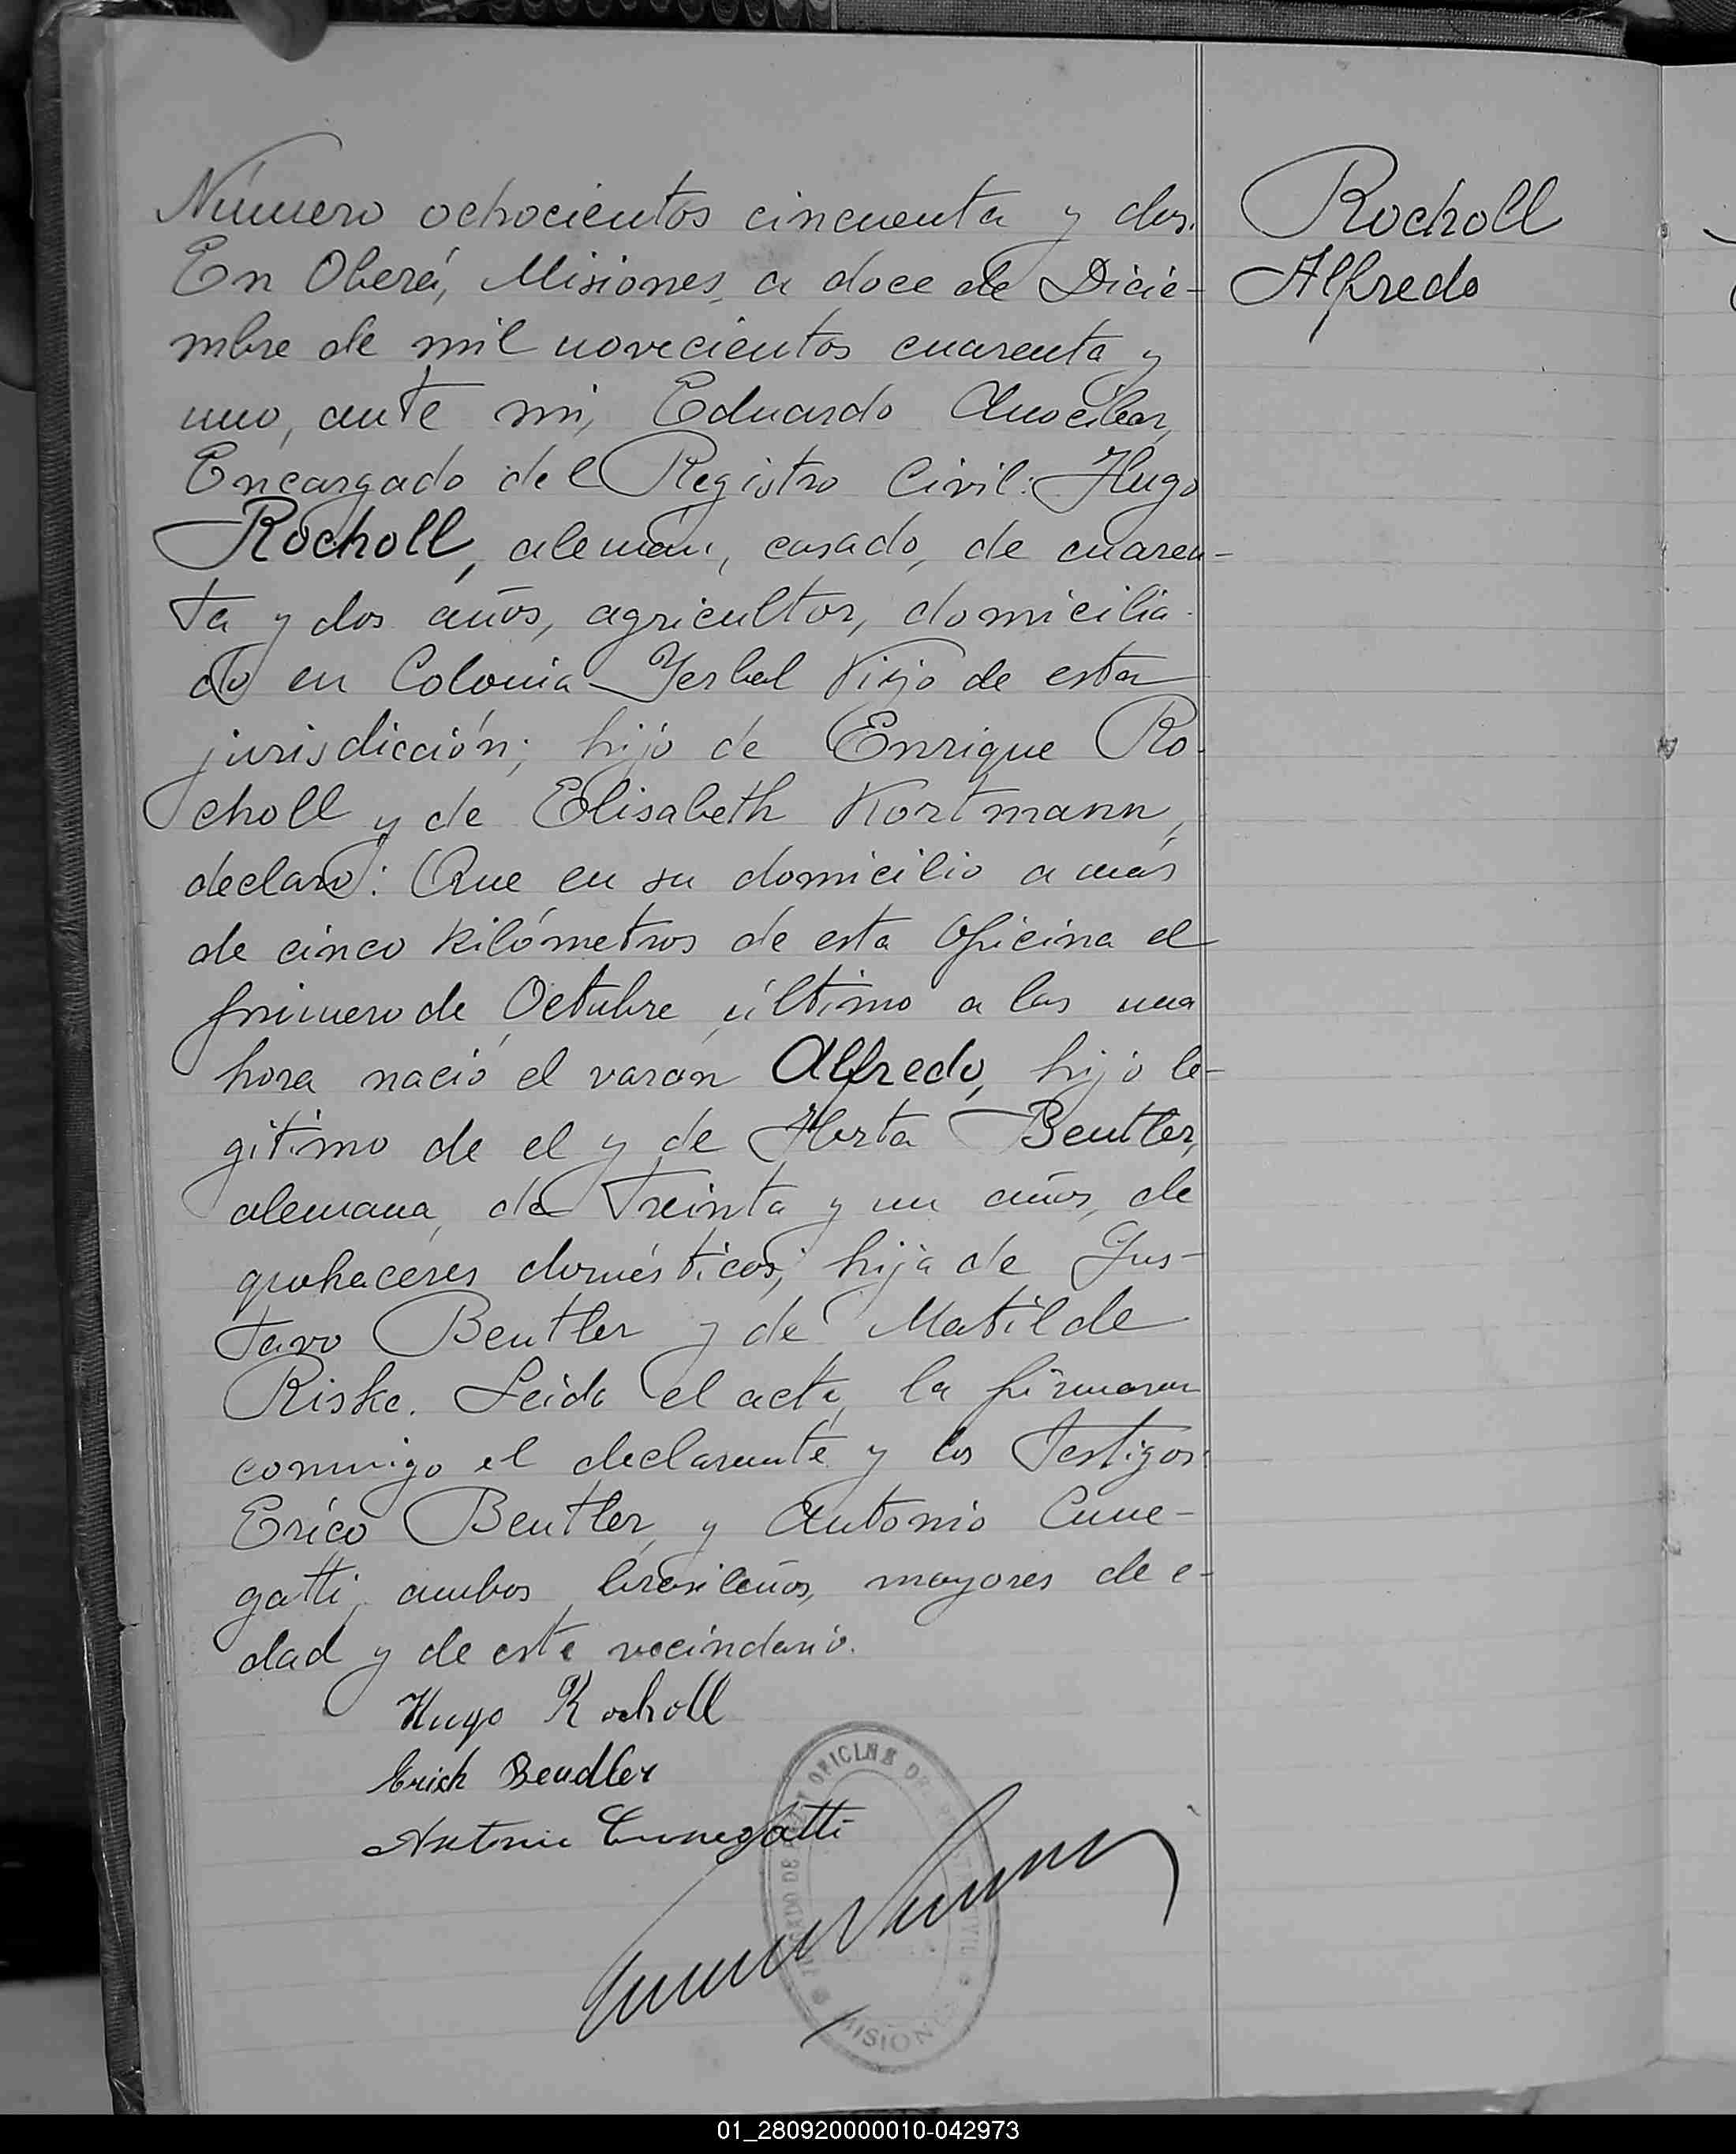 Número ochocientos cincuenta y dos.
En Oberá, Misiones, a doce de Dicie-
mbre de mil novecientos cuarenta y
uno, ante mi, Eduardo
Encargado del Registro Civil: Hugo
Rocholl, alemán, casado, de cuaren-
ta y dos años, agricultor, domicilia-
do en Colonia Yerbal Viejo de esta
jurisdicción; hijo de Enrique Ro-
choll y de Elisabeth Kortmann,
declaró: Que en su domicilio a más
de cinco kilómetros de esta Oficina el
primero de Octubre último a las una
hora nació el varón Alfredo, hijo le-
gítimo de el y de Herta Beutler,
alemana, de treinta y un años, de
quehaceres domésticos; hija de Gus-
tavo Beutler y de Matilde
Riske. Leída el acta, la firmaron
conmigo el declarante y los testigos:
Erico Beutler y Antonio Cune-
gatti, ambos brasileños, mayores de e-
dad y de este vecindario.
Hugo Rocholl
Erich Beudler
Antonio Cunegatti
OFICINA DE
MISIONES
Rocholl
Alfredo
01_280920000010-042973